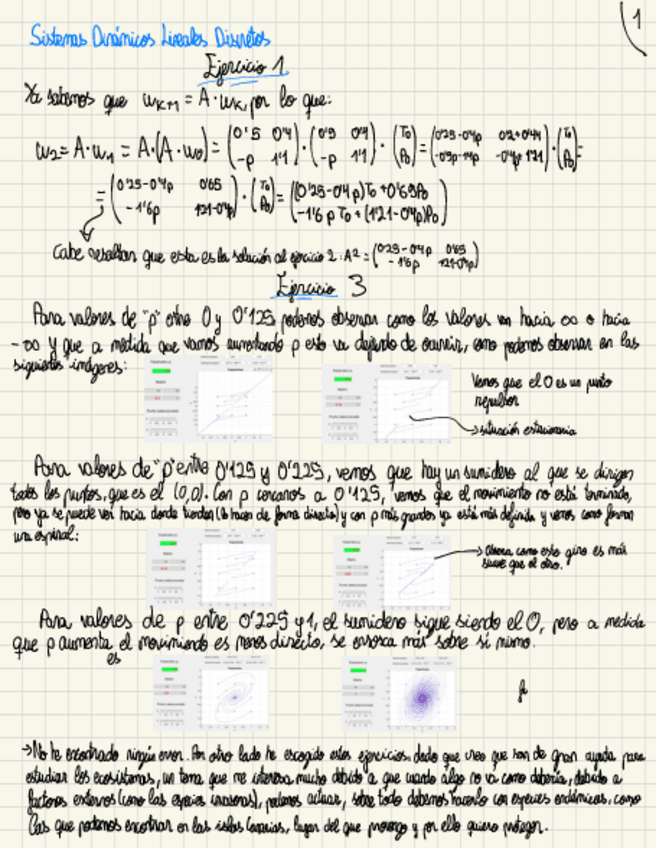 1
Sistemas Dinámicos Lineales Discretos
Ejercicio 1
Ya sabemos que u_{K+1} = A · u_K, por lo que:
u_2 = A·u_1 = A·(A·u_0) = (0'5 0'4 / -p 1'1) · (0'5 0'4 / -p 1'1) · (T_0 / P_0) = (0'25-0'4p 0'2+0'44 / -0'5p-1'1p -0'4p+1'21) · (T_0 / P_0) =
= (0'25-0'4p 0'65 / -1'6p 1'21-0'4p) · (T_0 / P_0) = ((0'25-0'4p)T_0 + 0'65P_0 / -1'6p T_0 + (1'21-0'4p)P_0)
Cabe resaltar que esta es la solución al ejercicio 2: A² = (0'25-0'4p 0'65 / -1'6p 1'21-0'4p)
Ejercicio 3
Para valores de "p" entre 0 y 0'125 podemos observar como los valores van hacia ∞ o hacia
-∞ y que a medida que vamos aumentando p esto va dejando de ocurrir, como podemos observar en las
siguientes imágenes:
Vemos que el 0 es un punto
repulsor
→ situación estacionaria
Para valores de "p" entre 0'125 y 0'225, vemos que hay un sumidero al que se dirigen
todos los puntos, que es el (0,0). Con p cercanos a 0'125, vemos que el movimiento no está terminado,
pero ya se puede ver hacia donde tienden (lo hacen de forma directa) y con p más grandes ya está más definido y vemos como forman
una espiral:
→ Observa como este giro es más
suave que el otro.
Para valores de p entre 0'225 y 1, el sumidero sigue siendo el 0, pero a medida
que p aumenta el movimiento es menos directo, se enrosca más sobre sí mismo.
es
→ No he encontrado ningún error. Por otro lado he escogido estos ejercicios, dado que creo que son de gran ayuda para
estudiar los ecosistemas, un tema que me interesa mucho debido a que cuando algo no va como debería, debido a
factores externos (como las especies invasoras), podemos actuar, sobre todo debemos hacerlo con especies endémicas, como
las que podemos encontrar en las islas Canarias, lugar del que provengo y por ello quiero proteger.